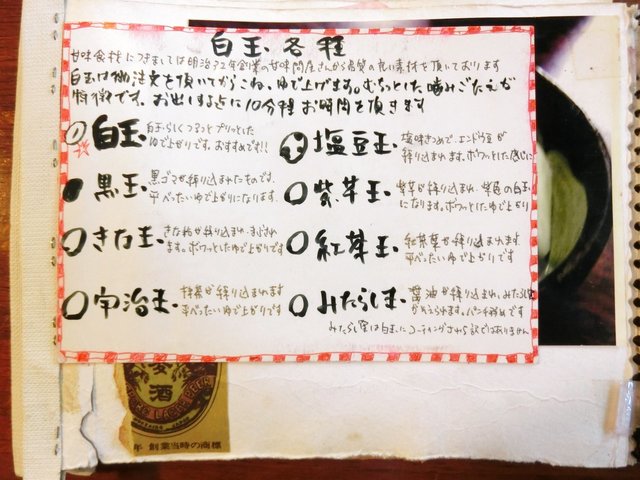 白玉各種
甘味食材につきましては明治22年創業の甘味問屋さんから良質の良い素材を頂いております
白玉は御注文を頂いてからこね、ゆで上げます。むちっとした噛みごたえが
特徴です。お出しするまでに10分程お時間を頂きます
白玉・白玉らしくつるっとプリッとした
ゆで上がりです。おすすめです!!
黒玉・黒ゴマが練り込まれたものです。
平べったいゆで上がりになります。
きな玉・きな粉が練り込まれ、まぶされ
ます。ボワっとしたゆで上がりです
宇治玉・抹茶が練り込まれます
平べったいゆで上がりです
塩豆玉・塩味きつめで、エンドウ豆が
練り込まれます。ボワっとした感じに
紫芋玉・紫芋が練り込まれ、紫色の白玉
になります。ボワっとしたゆで上がり
紅茶玉・紅茶葉が練り込まれます
平べったいゆで上がりです
みたらし玉・醤油が練り込まれ、みたらし
がそえられます。パンチ弱めです
みたらし餡は白玉にコーティングされる訳ではありません
麦酒
LAGER BEER
年 創業当時の商標